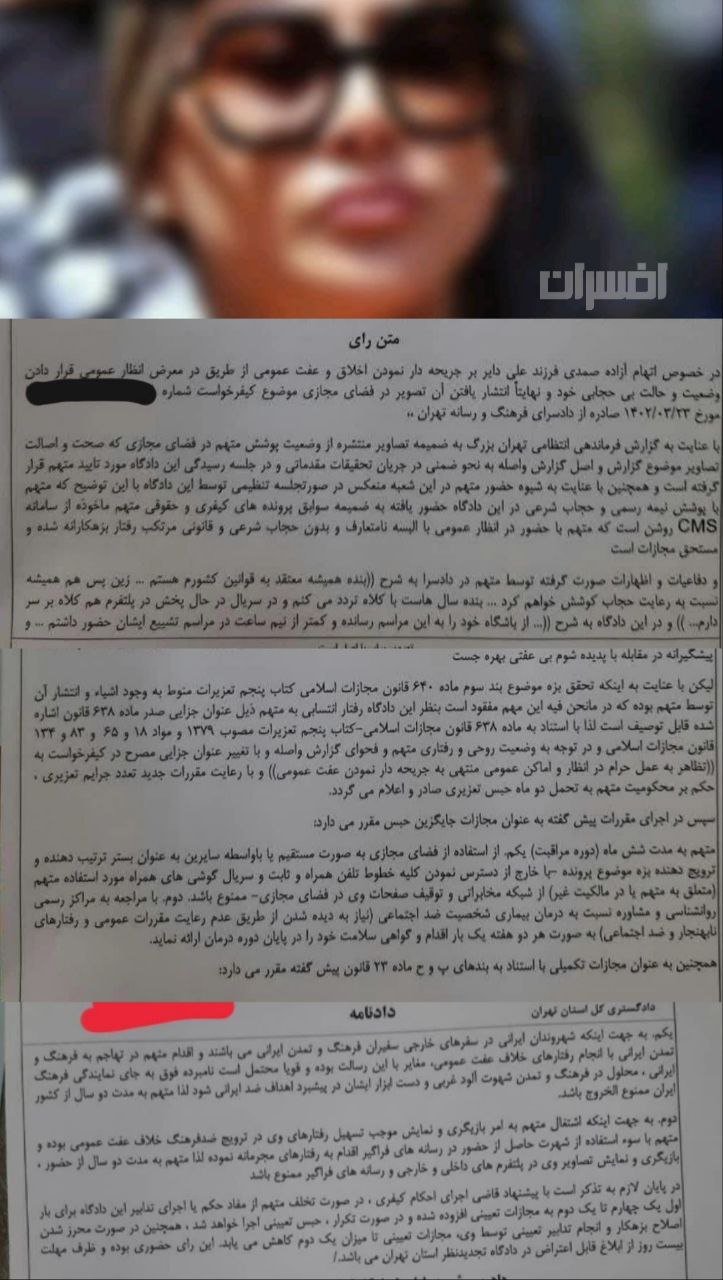 افسران
متن رای
در خصوص اتهام آزاده صمدی فرزند علی دایر بر جریحه دار نمودن اخلاق و عفت عمومی از طریق در معرض انظار عمومی قرار دادن
وضعیت و حالت بی حجابی خود و نهایتاً انتشار یافتن آن تصویر در فضای مجازی موضوع کیفرخواست شماره
مورخ ۱۴۰۲/۰۳/۲۳ صادره از دادسرای فرهنگ و رسانه تهران ،،
با عنایت به گزارش فرماندهی انتظامی تهران بزرگ به ضمیمه تصاویر منتشره از وضعیت پوشش متهم در فضای مجازی که صحت و اصالت
تصاویر موضوع گزارش و اصل گزارش واصله به نحو ضمنی در جریان تحقیقات مقدماتی و در جلسه رسیدگی این دادگاه مورد تایید متهم قرار
گرفته است و همچنین با عنایت به شیوه حضور متهم در این شعبه منعکس در صورتجلسه تنظیمی توسط این دادگاه با این توضیح که متهم
با پوشش نیمه رسمی و حجاب شرعی در این دادگاه حضور یافته به ضمیمه سوابق پرونده های کیفری و حقوقی متهم ماخوذه از سامانه
CMS روشن است که متهم با حضور در انظار عمومی با البسه نامتعارف و بدون حجاب شرعی و قانونی مرتکب رفتار بزهکارانه شده و
مستحق مجازات است
و دفاعیات و اظهارات صورت گرفته توسط متهم در دادسرا به شرح ((بنده همیشه معتقد به قوانین کشورم هستم ... زین پس هم همیشه
نسبت به رعایت حجاب کوشش خواهم کرد ... بنده سال هاست با کلاه تردد می کنم و در سریال در حال پخش در پلتفرم هم کلاه بر سر
دارم... )) و در این دادگاه به شرح ((... از باشگاه خود را به این مراسم رسانده و کمتر از نیم ساعت در مراسم تشییع ایشان حضور داشتم ... و
پیشگیرانه در مقابله با پدیده شوم بی عفتی بهره جست
لیکن با عنایت به اینکه تحقق بزه موضوع بند سوم ماده ۶۴۰ قانون مجازات اسلامی کتاب پنجم تعزیرات منوط به وجود اشیاء و انتشار آن
توسط متهم بوده که در مانحن فیه این مهم مفقود است بنظر این دادگاه رفتار انتسابی به متهم ذیل عنوان جزایی صدر ماده ۶۳۸ قانون اشاره
شده قابل توصیف است لذا با استناد به ماده ۶۳۸ قانون مجازات اسلامی-کتاب پنجم تعزیرات مصوب ۱۳۷۹ و مواد ۱۸ و ۶۵ و ۸۳ و ۱۳۴
قانون مجازات اسلامی و در توجه به وضعیت روحی و رفتاری متهم و فحوای گزارش واصله و با تغییر عنوان جزایی مصرح در کیفرخواست به
((تظاهر به عمل حرام در انظار و اماکن عمومی منتهی به جریحه دار نمودن عفت عمومی)) و با رعایت مقررات جدید تعدد جرایم تعزیری ،
حکم بر محکومیت متهم به تحمل دو ماه حبس تعزیری صادر و اعلام می گردد.
سپس در اجرای مقررات پیش گفته به عنوان مجازات جایگزین حبس مقرر می دارد:
متهم به مدت شش ماه (دوره مراقبت) یکم. از استفاده از فضای مجازی به صورت مستقیم یا باواسطه سایرین به عنوان بستر ترتیب دهنده و
ترویج دهنده بزه موضوع پرونده –با خارج از دسترس نمودن کلیه خطوط تلفن همراه و ثابت و سریال گوشی های همراه مورد استفاده متهم
(متعلق به متهم یا در مالکیت غیر) از شبکه مخابراتی و توقیف صفحات وی در فضای مجازی- ممنوع باشد. دوم. با مراجعه به مراکز رسمی
روانشناسی و مشاوره نسبت به درمان بیماری شخصیت ضد اجتماعی (نیاز به دیده شدن از طریق عدم رعایت مقررات عمومی و رفتارهای
نابهنجار و ضد اجتماعی) به صورت هر دو هفته یک بار اقدام و گواهی سلامت خود را در پایان دوره درمان ارائه نماید.
همچنین به عنوان مجازات تکمیلی با استناد به بندهای پ و ح ماده ۲۳ قانون پیش گفته مقرر می دارد:
دادگستری کل استان تهران
دادنامه
یکم. به جهت اینکه شهروندان ایرانی در سفرهای خارجی سفیران فرهنگ و تمدن ایرانی می باشند و اقدام متهم در تهاجم به فرهنگ و
تمدن ایرانی با انجام رفتارهای خلاف عفت عمومی، مغایر با این رسالت بوده و قویا محتمل است نامبرده فوق به جای نمایندگی فرهنگ
ایرانی ، محلول در فرهنگ و تمدن شهوت آلود غربی و دست ابزار ایشان در پیشبرد اهداف ضد ایرانی شود لذا متهم به مدت دو سال از کشور
ایران ممنوع الخروج باشد.
دوم. به جهت اینکه اشتغال متهم به امر بازیگری و نمایش موجب تسهیل رفتارهای وی در ترویج ضدفرهنگ خلاف عفت عمومی بوده و
متهم با سوء استفاده از شهرت حاصل از حضور در رسانه های فراگیر اقدام به رفتارهای مجرمانه نموده لذا متهم به مدت دو سال از حضور ،
بازیگری و نمایش تصاویر وی در پلتفرم های داخلی و خارجی و رسانه های فراگیر ممنوع باشد
در پایان لازم به تذکر است با پیشنهاد قاضی اجرای احکام کیفری ، در صورت تخلف متهم از مفاد حکم یا اجرای تدابیر این دادگاه برای بار
اول یک چهارم تا یک دوم به مجازات تعیینی افزوده شده و در صورت تکرار ، حبس تعیینی اجرا خواهد شد ، همچنین در صورت محرز شدن
اصلاح بزهکار و انجام تدابیر تعیینی توسط وی، مجازات تعیینی تا میزان یک دوم کاهش می یابد. این رای حضوری بوده و ظرف مهلت
بیست روز از ابلاغ قابل اعتراض در دادگاه تجدیدنظر استان تهران می باشد./